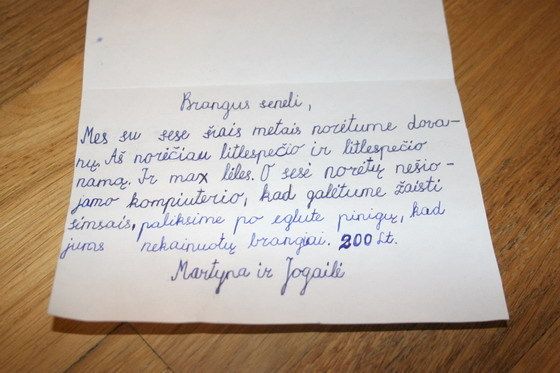 Brangus seneli,
Mes su sese šiais metais norėtume dova-
nų. Aš norėčiau litlespečio ir litlespečio
namą. Ir max lėlės. O sesė norėtų nešio-
jamo kompiuterio, kad galėtume žaisti
simsais, paliksime po eglute pinigų, kad
jums nekainuotų brangiai. 200 Lt.
Martyna ir Jogailė